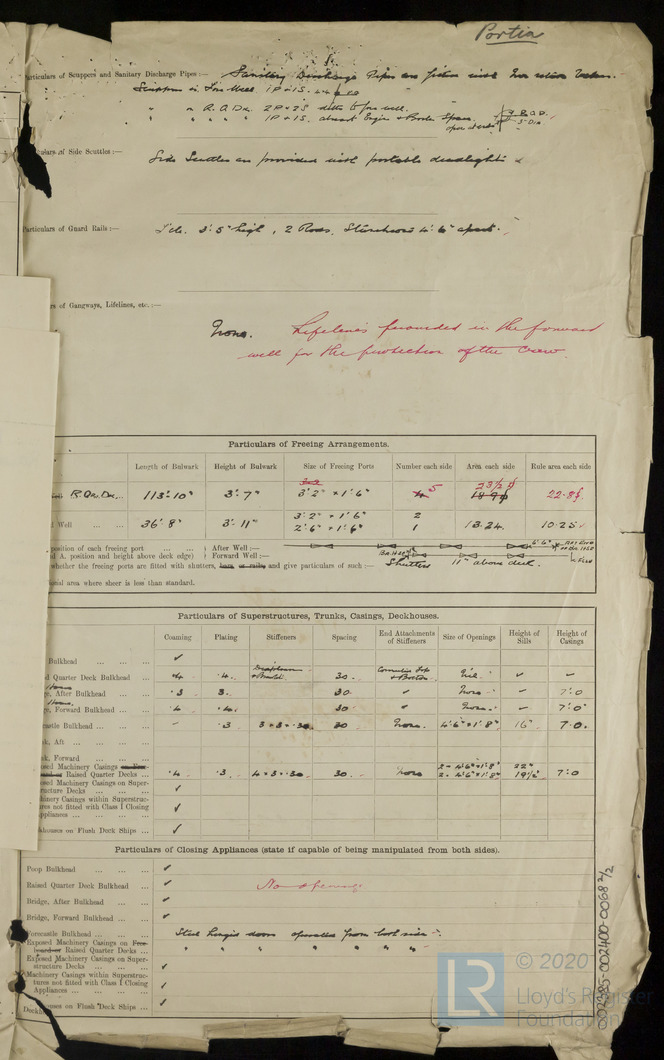 Portia
articulars of Scuppers and Sanitary Discharge Pipes :— Sanitary Discharge Pipes are fitted with Valves.
Scuppers in Fore Well 1P + 1S.
" " R. Q. Dk. 2P + 2S
" " " " 1P + 1S. abreast Engine + Boiler Space.
open deck
culars of Side Scuttles :— Side Scuttles are provided with portable deadlights
Particulars of Guard Rails :— 3'. 5" high, 2 Rods, Stanchions 4'. 6" apart.
rs of Gangways, Lifelines, etc. :—
None. Lifelines provided in the forward
well for the protection of the Crew.
Particulars of Freeing Arrangements.
Length of Bulwark Height of Bulwark Size of Freeing Ports Number each side Area each side Rule area each side
R. Qr. Dk. 113'. 10" 3'. 7" 3'. 2" × 1'. 6" 4 5 23½ 22.8
Well ... ... 36'. 8" 3'. 11" 3'. 2" × 1'. 6" 2 13.24 10.25
2'. 6" × 1'. 6" 1
position of each freeing port ... ... ... ) After Well :—
A. position and height above deck edge) ) Forward Well :—
whether the freeing ports are fitted with shutters, bars or rails, and give particulars of such :— Shutters 11" above deck.
ional area where sheer is less than standard.
Particulars of Superstructures, Trunks, Casings, Deckhouses.
Coaming Plating Stiffeners Spacing End Attachments of Stiffeners Size of Openings Height of Sills Height of Casings
Bulkhead ... ... ... ✓
d Quarter Deck Bulkhead ... .4 .4 30 Nil ✓ –
ge, After Bulkhead ... ... .3 3. 30 " None – 7'.0
ge, Forward Bulkhead ... .4 .4 30 " None – 7'.0"
castle Bulkhead ... ... – .3 3 × 3 × .30 30 None. 4'.6" × 1'.8" 16" 7'.0.
k, Aft ... ... ...
k, Forward ... ... ...
osed Machinery Casings on Free-
Raised Quarter Decks ... .4 .3 4 × 3 × .30 30 None 2 - 4'.6" × 1'.8" 22" 7'.0
2 - 4'.6" × 1'.8" 19½"
osed Machinery Casings on Super-
ructure Decks ... ... ✓
hinery Casings within Superstruc-
ures not fitted with Class I Closing
ppliances ... ... ... ✓
khouses on Flush Deck Ships ... ✓
Particulars of Closing Appliances (state if capable of being manipulated from both sides).
Poop Bulkhead ... ... ... ✓
Raised Quarter Deck Bulkhead ... ✓ No openings
Bridge, After Bulkhead ... ... ✓
Bridge, Forward Bulkhead ... ... ✓
Forecastle Bulkhead ... ... ... Steel hinged doors operated from both sides
Exposed Machinery Casings on Free-
board or Raised Quarter Decks ... " " " " " " "
Exposed Machinery Casings on Super-
structure Decks ... ... ... ✓
Machinery Casings within Superstruc-
tures not fitted with Class I Closing
Appliances ... ... ... ... ✓
Deckhouses on Flush Deck Ships ... ✓
002385-002400-0068 2/2
LR
© 2020
Lloyd's Register
Foundation